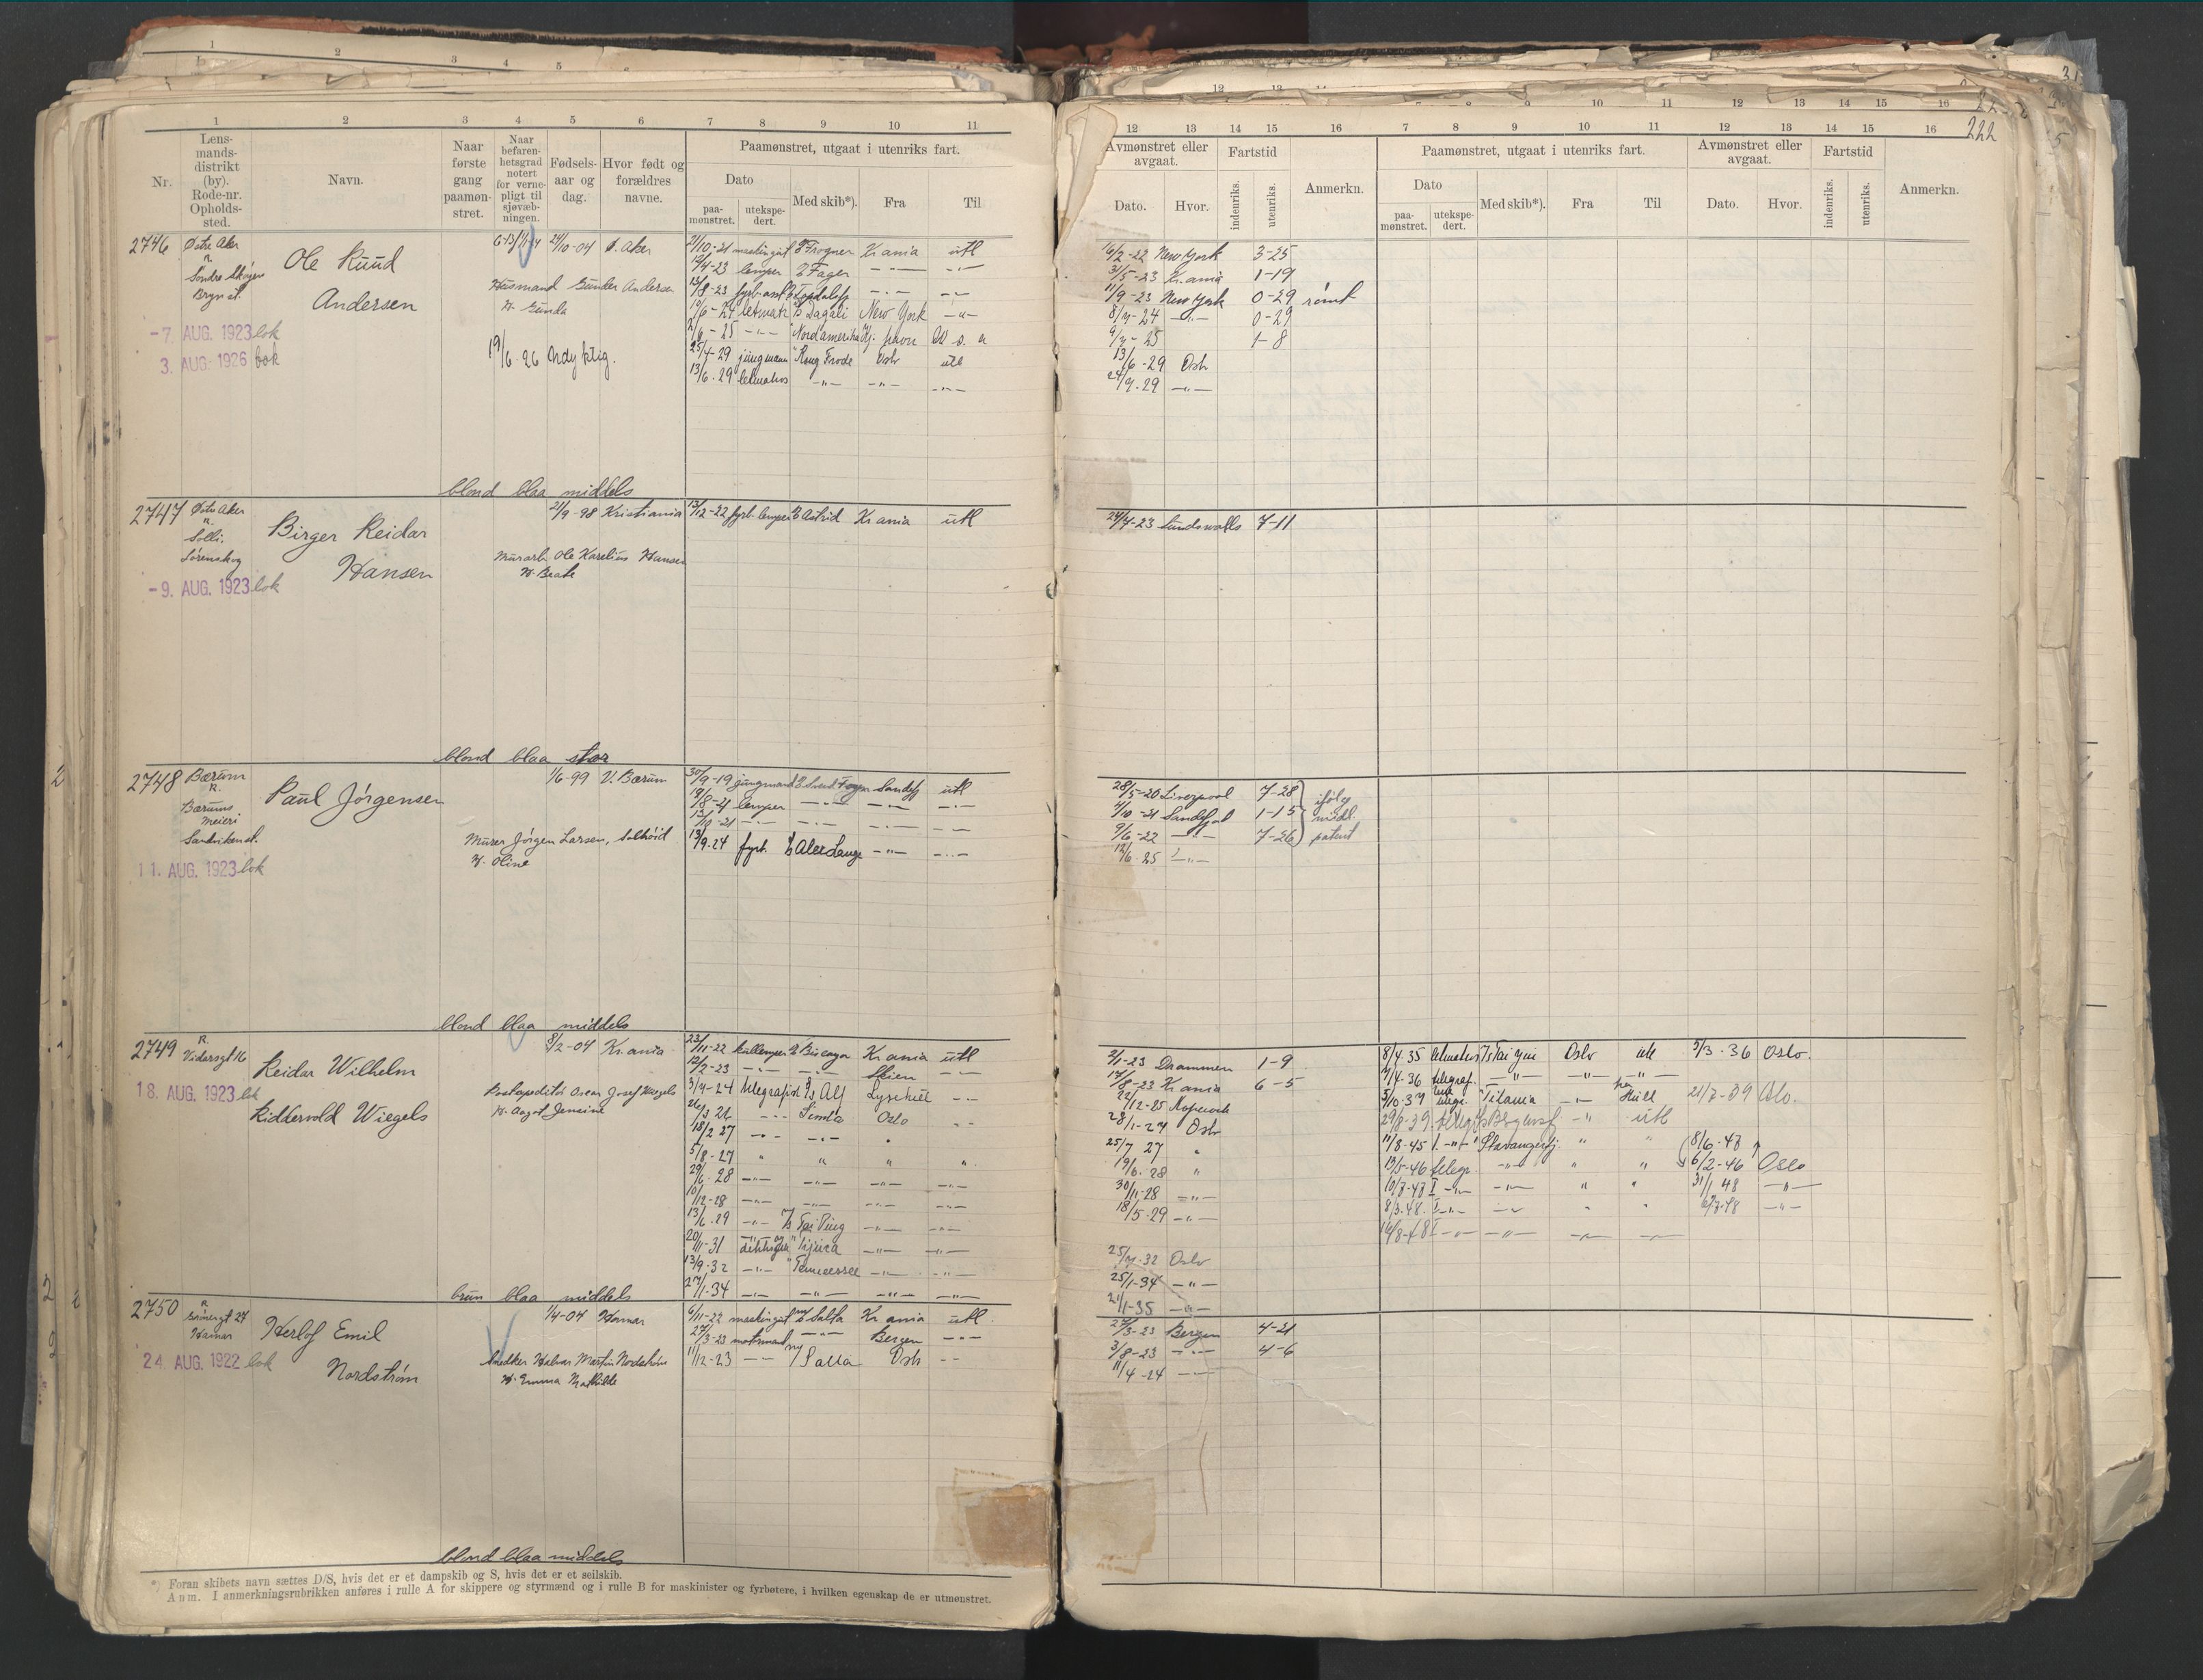 222
1 2 3 4 5 6 7 8 9 10 11
Nr.
Lens-
mands-
distrikt
(by).
Rode-nr.
Opholds-
sted.
Navn.
Naar
første
gang
paamøn-
stret.
Naar
befaren-
hetsgrad
notert
for verne-
pligt til
sjøvæb-
ningen.
Fødsels-
aar og
dag.
Hvor født og
forældres
navne.
Paamønstret, utgaat i utenriks fart.
Dato
paa-
mønstret.
utekspe-
dert.
Med skib*).
Fra
Til
12 13 14 15 16 7 8 9 10 11 12 13 14 15 16
Avmønstret eller
avgaat.
Dato.
Hvor.
Fartstid
indenriks.
utenriks.
Anmerkn.
Paamønstret, utgaat i utenriks fart.
Dato
paa-
mønstret.
utekspe-
dert.
Med skib*).
Fra
Til
Avmønstret eller
avgaat.
Dato.
Hvor.
Fartstid
indenriks.
utenriks.
Anmerkn.
2746 Østre Aker
R.
Søndre Skøyen
Bryn st.
Ole Ruud
Andersen
-7. AUG. 1923 bok
3. AUG. 1926 bok
24/10-04 Ø. Aker
Husmand Gunder Andersen
H. Gunda
19/6-26 Ordyktig.
21/10-21 maskingut D/S Frogner Kr.ania utl
19/4-23 lemper D/S Fager -"- -"-
13/8-23 fyrb.asst. D/S Topdalsfj -"- -"-
19/6-24 letmatr D/S Dagali New York -"-
2/6-25 -"- Nordamerika Kj. havn
25/4-29 jungmann " Kong Frode Oslo utl
13/6-29 letmatros -"- -"- -"-
16/2-22 New York 3-25
31/5-23 Kr.ania 1-19
11/9-23 New York 0-29 rømt
8/7-24 -"- 0-29
9/7-25 1-8
13/6-29 Oslo
24/9-29 -"-
blond blaa middels
2747 Østre Aker
R.
Solli.
Lørenskog
Birger Reidar
Hansen
-9. AUG. 1923 bok
21/9-98 Kristiania
Murarb. Ole Karelius Hansen
H. Beate
13/12-22 fyrb. lemper D/S Astrid Kr.ania utl
24/7-23 Sundsvalls 7-11
blond blaa stor
2748 Bærum
R.
Bærums
meieri
Sandviken st.
Paul Jørgensen
11. AUG. 1923 bok
1/6-99 V. Bærum
Murer Jørgen Larsen,
H. Oline
30/9-19 jungmand D/S Svend Foyn Sandefj utl
19/8-21 lemper -"- -"- -"-
13/10-21 -"- -"- -"- -"-
13/9-24 fyrb. D/S Alex Lange -"- -"-
28/5-20 Liverpool 7-28
7/10-21 Sandefjord 1-15
9/6-22 -"- 7-26
ifølg
middl.
patent
12/6-25 -"-
blond blaa middels
2749 R.
Vidarsgt 16
Reidar Wilhelm
Riddervold Wiegels
18. AUG. 1923 bok
8/2-04 Kr.ania
Postexpeditør Oscar Josef Wiegels
H. Aagot Jensine
23/11-22 kullemper D/S Biscaya Kr.ania utl
12/2-23 -"- -"- Skien -"-
3/4-24 telegrafist D/S Alf Lysekill -"-
26/3 26 -"- Simla Oslo -"-
18/2 27 -"- -"- " -"-
5/8-27 " " " "
29/6-28 -"- -"- -"- -"-
10/12-28 -"- -"- -"- -"-
13/6-29 -"- M/S Tai Ping -"- -"-
20/11-31 -"- og " Tijuca -"- -"-
13/9-32 -"- " Tennessee -"- -"-
27/1-34 -"- -"- -"- -"-
2/1-23 Drammen 1-9
17/8-23 Kr.ania 6-5
22/12-25
28/1-27 Oslo
25/7 27 "
19/6-28 "
30/11-28 -"-
18/5-29 -"-
25/7-32 Oslo
25/1-34 -"-
21/1-35 -"-
8/4-35 M/S Tai Yin Oslo utl 5/3-36 Oslo.
7/4-36 telegraf. -"- -"- -"-
5/10-37 " Titania -"- Hull 21/7-39 Oslo.
29/8-39 telegr. Bergensfj -"- utl
11/8-45 1. -"- " Stavangerfj. " " 8/6-47
13/5-46 telegr. -"- " " 6/2-46 Oslo
10/7-47 I -"- -"- " " 31/1 48 -"-
8/3-48 I -"- -"- " " -"-
16/8-48 I -"- -"- -"- -"-
brun blaa middels
2750 R.
Grønnegt 27
Hamar
Herlof Emil
Nordstrøm
24 AUG. 1922 bok
1/4-04 Hamar
Snedker Halvor Martin Nordstrøm
H. Emma Mathilde
6/11-22 maskingut M/S Salta Kr.ania utl
27/3-23 motormand -"- Bergen -"-
11/12-23 -"- M/S Salta Oslo -"-
27/3-23 Bergen 4-21
3/8-23 -"- 4-6
11/4-24 -"-
blond blaa middels
*) Foran skibets navn sættes D/S, hvis det er et dampskib og S, hvis det er et seilskib.
Anm. I anmerkningsrubrikken anføres i rulle A for skippere og styrmænd og i rulle B for maskinister og fyrbøtere, i hvilken egenskap de er utmønstret.